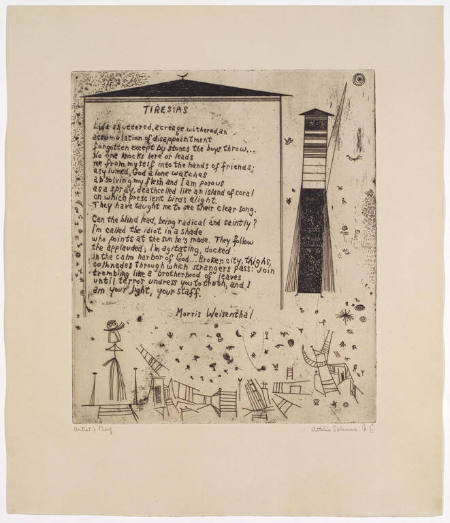 TIRESIAS
Life shuttered, acreage withered, an
accumulation of disappointment
forgotten except by stones the boys throw...
No one knocks here or leads
me from myself into the hands of friends;
asylumed, God alone watches
absolving my flesh and I am porous
as a spray, deathcelled like an island of coral
on which prescient birds alight.
They have taught me to see their clear song.
Can the blind lead, being radical and saintly?
I'm called the idiot in a shade
who points at the sun he's made. They follow
the applauded, I'm agitating, docked
in the calm harbor of God... Broken city, thighs,
colonnades through which strangers pass: Join
trembling like a "brotherhood of" leaves
until terror undress you to truth, and I
am your light, your staff.
Morris Weisenthal
Artist's Proof
Attilio Salemme